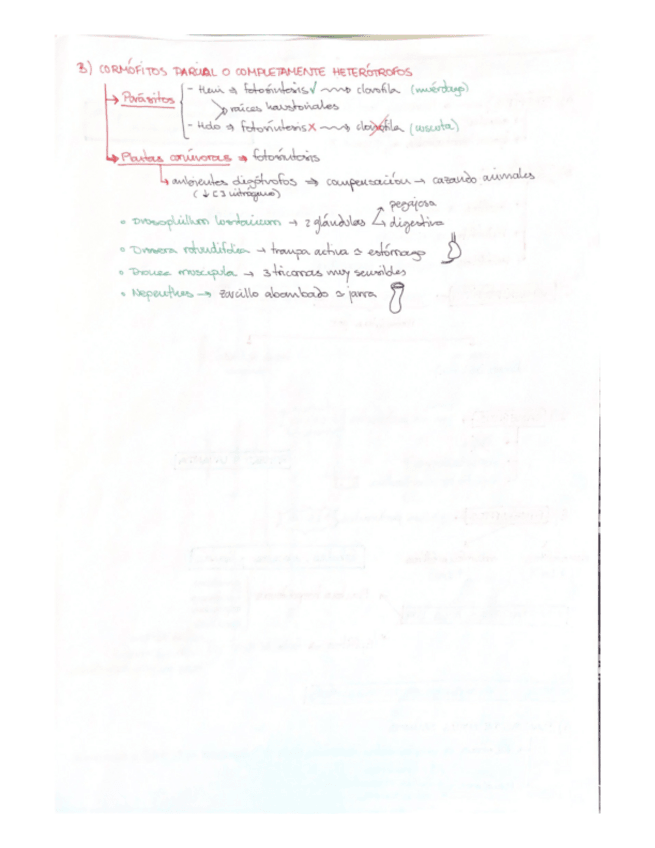 3) CORMÓFITOS PARCIAL O COMPLETAMENTE HETERÓTROFOS
→ Parásitos - Hemi → fotosíntesis ✓ ⟿ clorofila (muérdago)
raíces haustoriales
- Holo → fotosíntesis X ⟿ clorofila (cuscuta)
→ Plantas carnívoras → fotosíntesis
→ ambientes oligótrofos ⇒ compensación → cazando animales
(↓ [ ] nitrógeno)
• Drosophillum lusitanicum → 2 glándulas pegajosa digestiva
• Drosera rotundifolia → trampa activa ≃ estómago
• Dionea muscipula → 3 tricomas muy sensibles
• Nepenthes → zarcillo abombado ≃ jarra